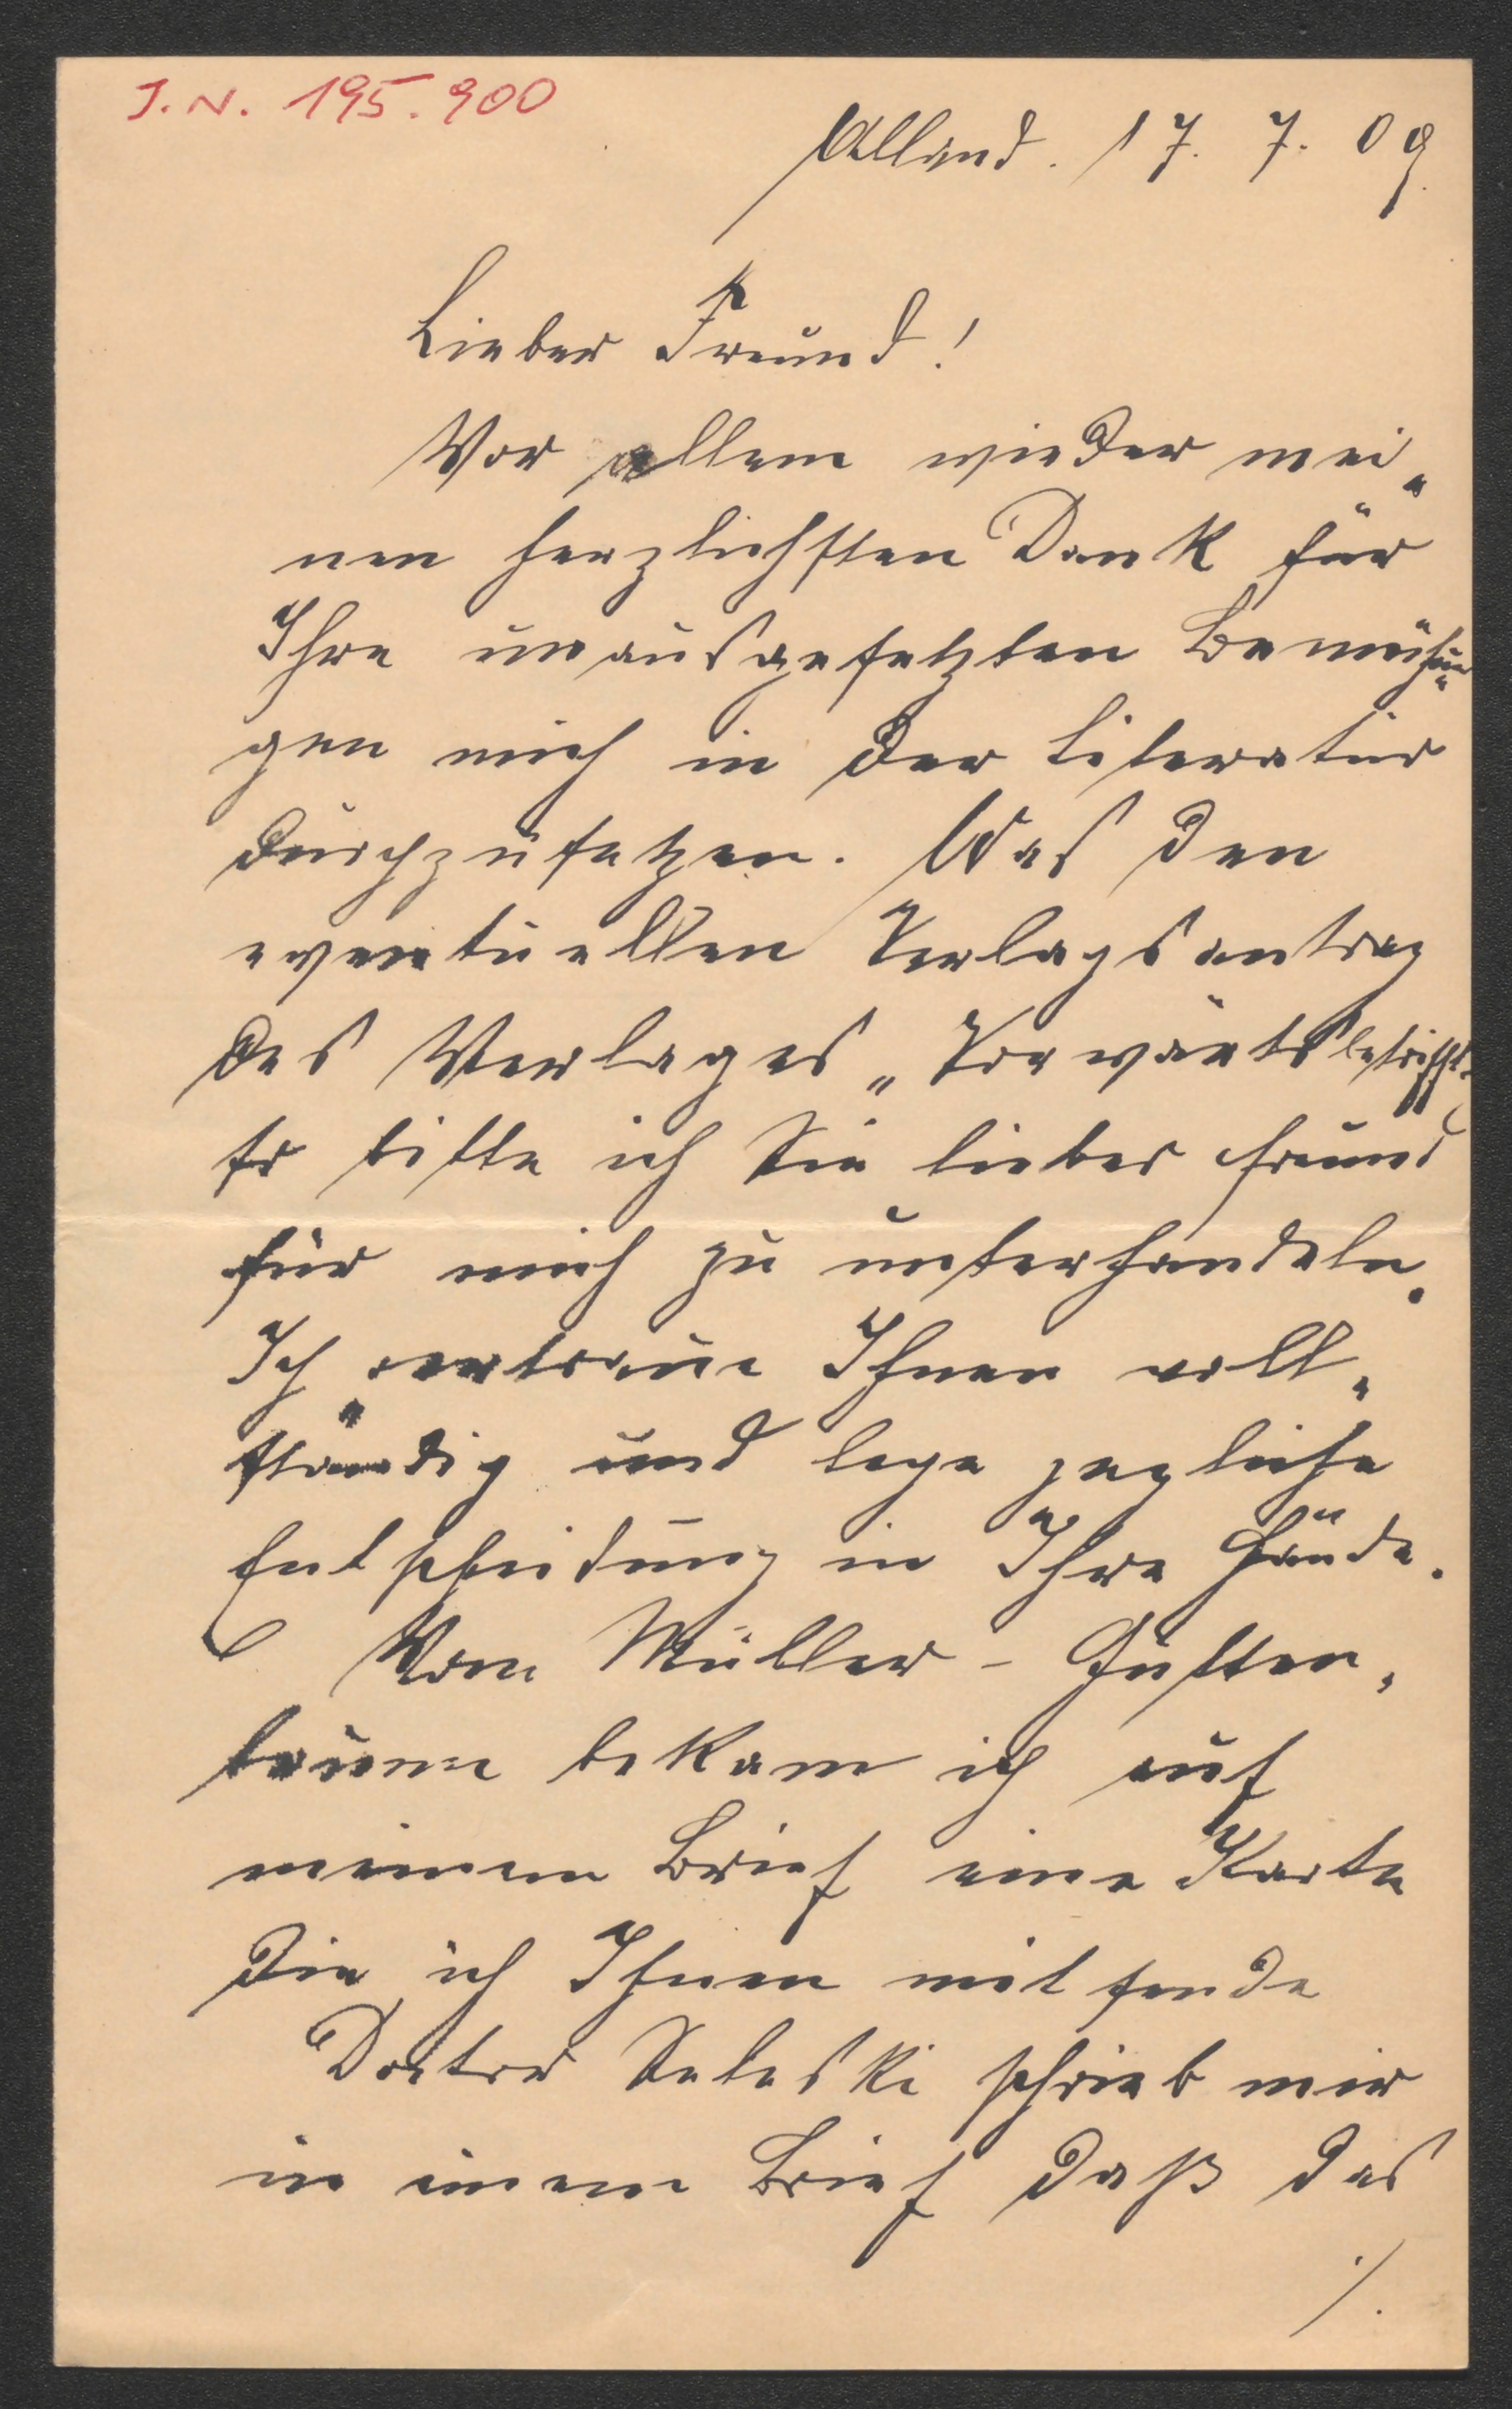 J.N. 195.900
Alland. 17. 7. 09.
Lieber Freund!
Vor allem wieder mei„
nen herzlichsten Dank für
Ihre unausgesetzten Bemühun„
gen mich in der Literatur
durchzusetzen. Was den
eventuellen Verlagsantrag
des Verlages „Vorwärts betrifft.
so bitte ich Sie lieber Freund
für mich zu unterhandeln.
Ich vertraue Ihnen voll„
ständig und lege jegliche
Entscheidung in Ihre Hände.
Vom Müller - Guttenbrunn,
bekam ich auf
meinem Brief eine Karte
die ich Ihnen mit sende
Doctor schrieb mir
in einem Brief daß das
./.